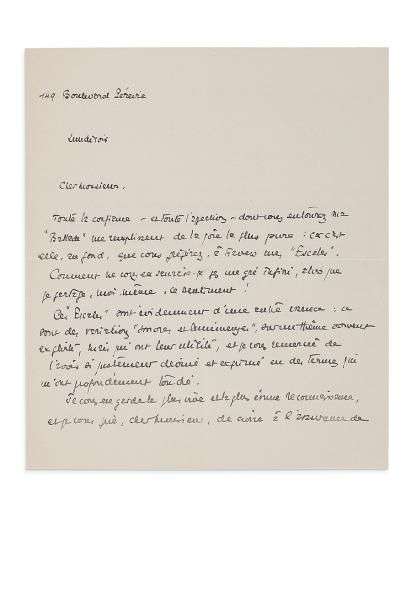 149 Boulevard Pereire
Lundi soir
Cher Monsieur,
Toute la confiance – et toute l'affection – dont vous entourez ma
"Ballade" me remplissent de la joie la plus pure : car c'est
elle, au fond, que vous préférez, à travers mes "Escales".
Comment ne vous en saurais-je pas gré infini, alors que
je partage, moi-même, ce sentiment !
Ces "Escales" sont évidemment d'une autre essence : ce
sont des variations "sonores et lumineuses", sur un thème souvent
exploité, mais qui ont leur utilité, et je vous remercie de
l'avoir si justement deviné et exprimé en des termes qui
m'ont profondément touché.
Je vous en garde la plus vive et la plus émue reconnaissance,
et je vous prie, cher Monsieur, de croire à l'assurance de